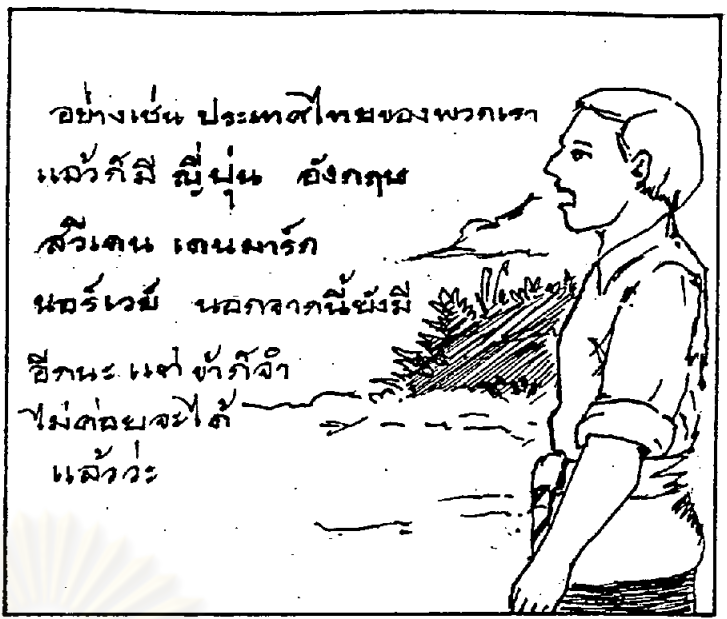 อย่างเช่น ประเทศไทยของพวกเรา
แล้วก็มี ญี่ปุ่น อังกฤษ
สวีเดน เดนมาร์ค
นอร์เวย์ นอกจากนี้ยังมี
อีกนะ แต่ ข้าก็จำ
ไม่ค่อยจะได้
แล้วว่ะ